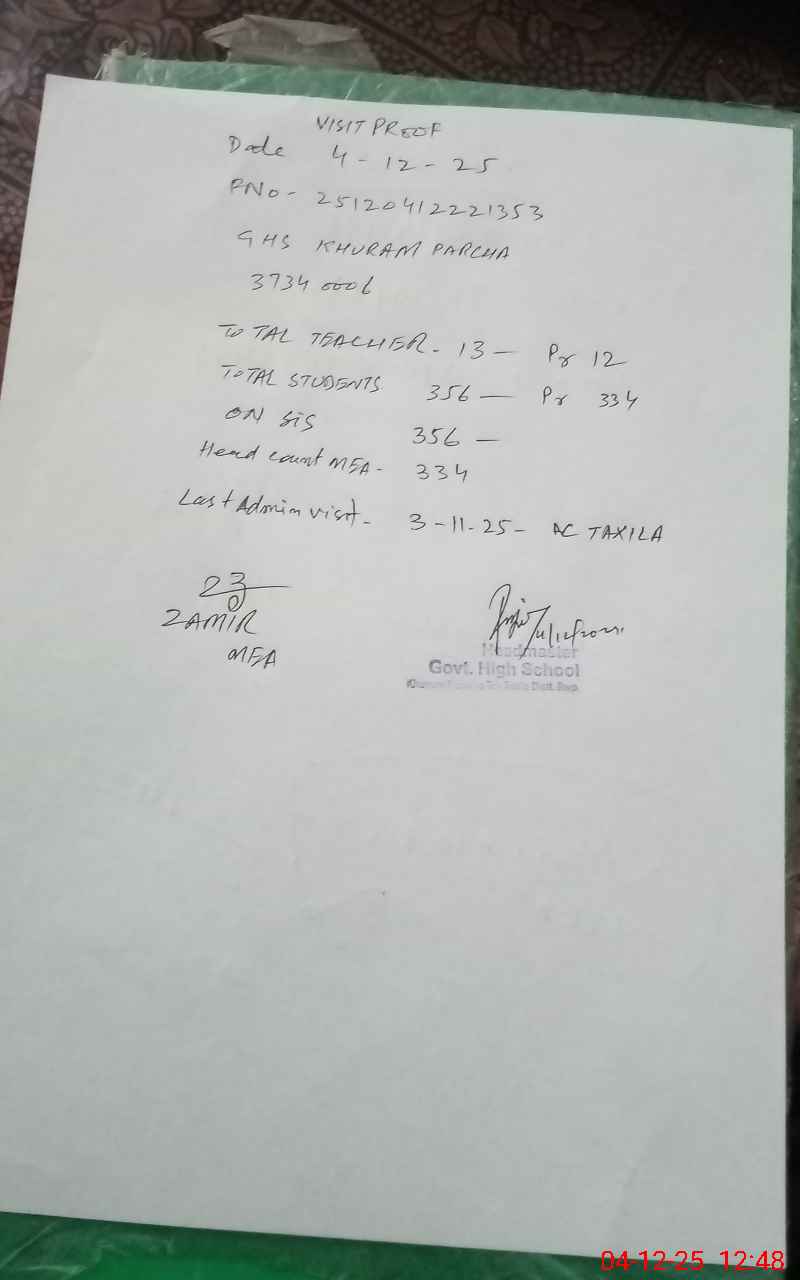 VISIT PROOF
Date 4-12-25
PNo- 25120412221353
GHS KHURAM PARCHA
37340006
TOTAL TEACHER- 13 — Pr 12
TOTAL STUDENTS 356 — Pr 334
ON SIS 356 —
Head count MEA- 334
Last Admin visit- 3-11-25- AC TAXILA
ZAMIR
MEA
Headmaster
Govt. High School
04-12-25 12:48